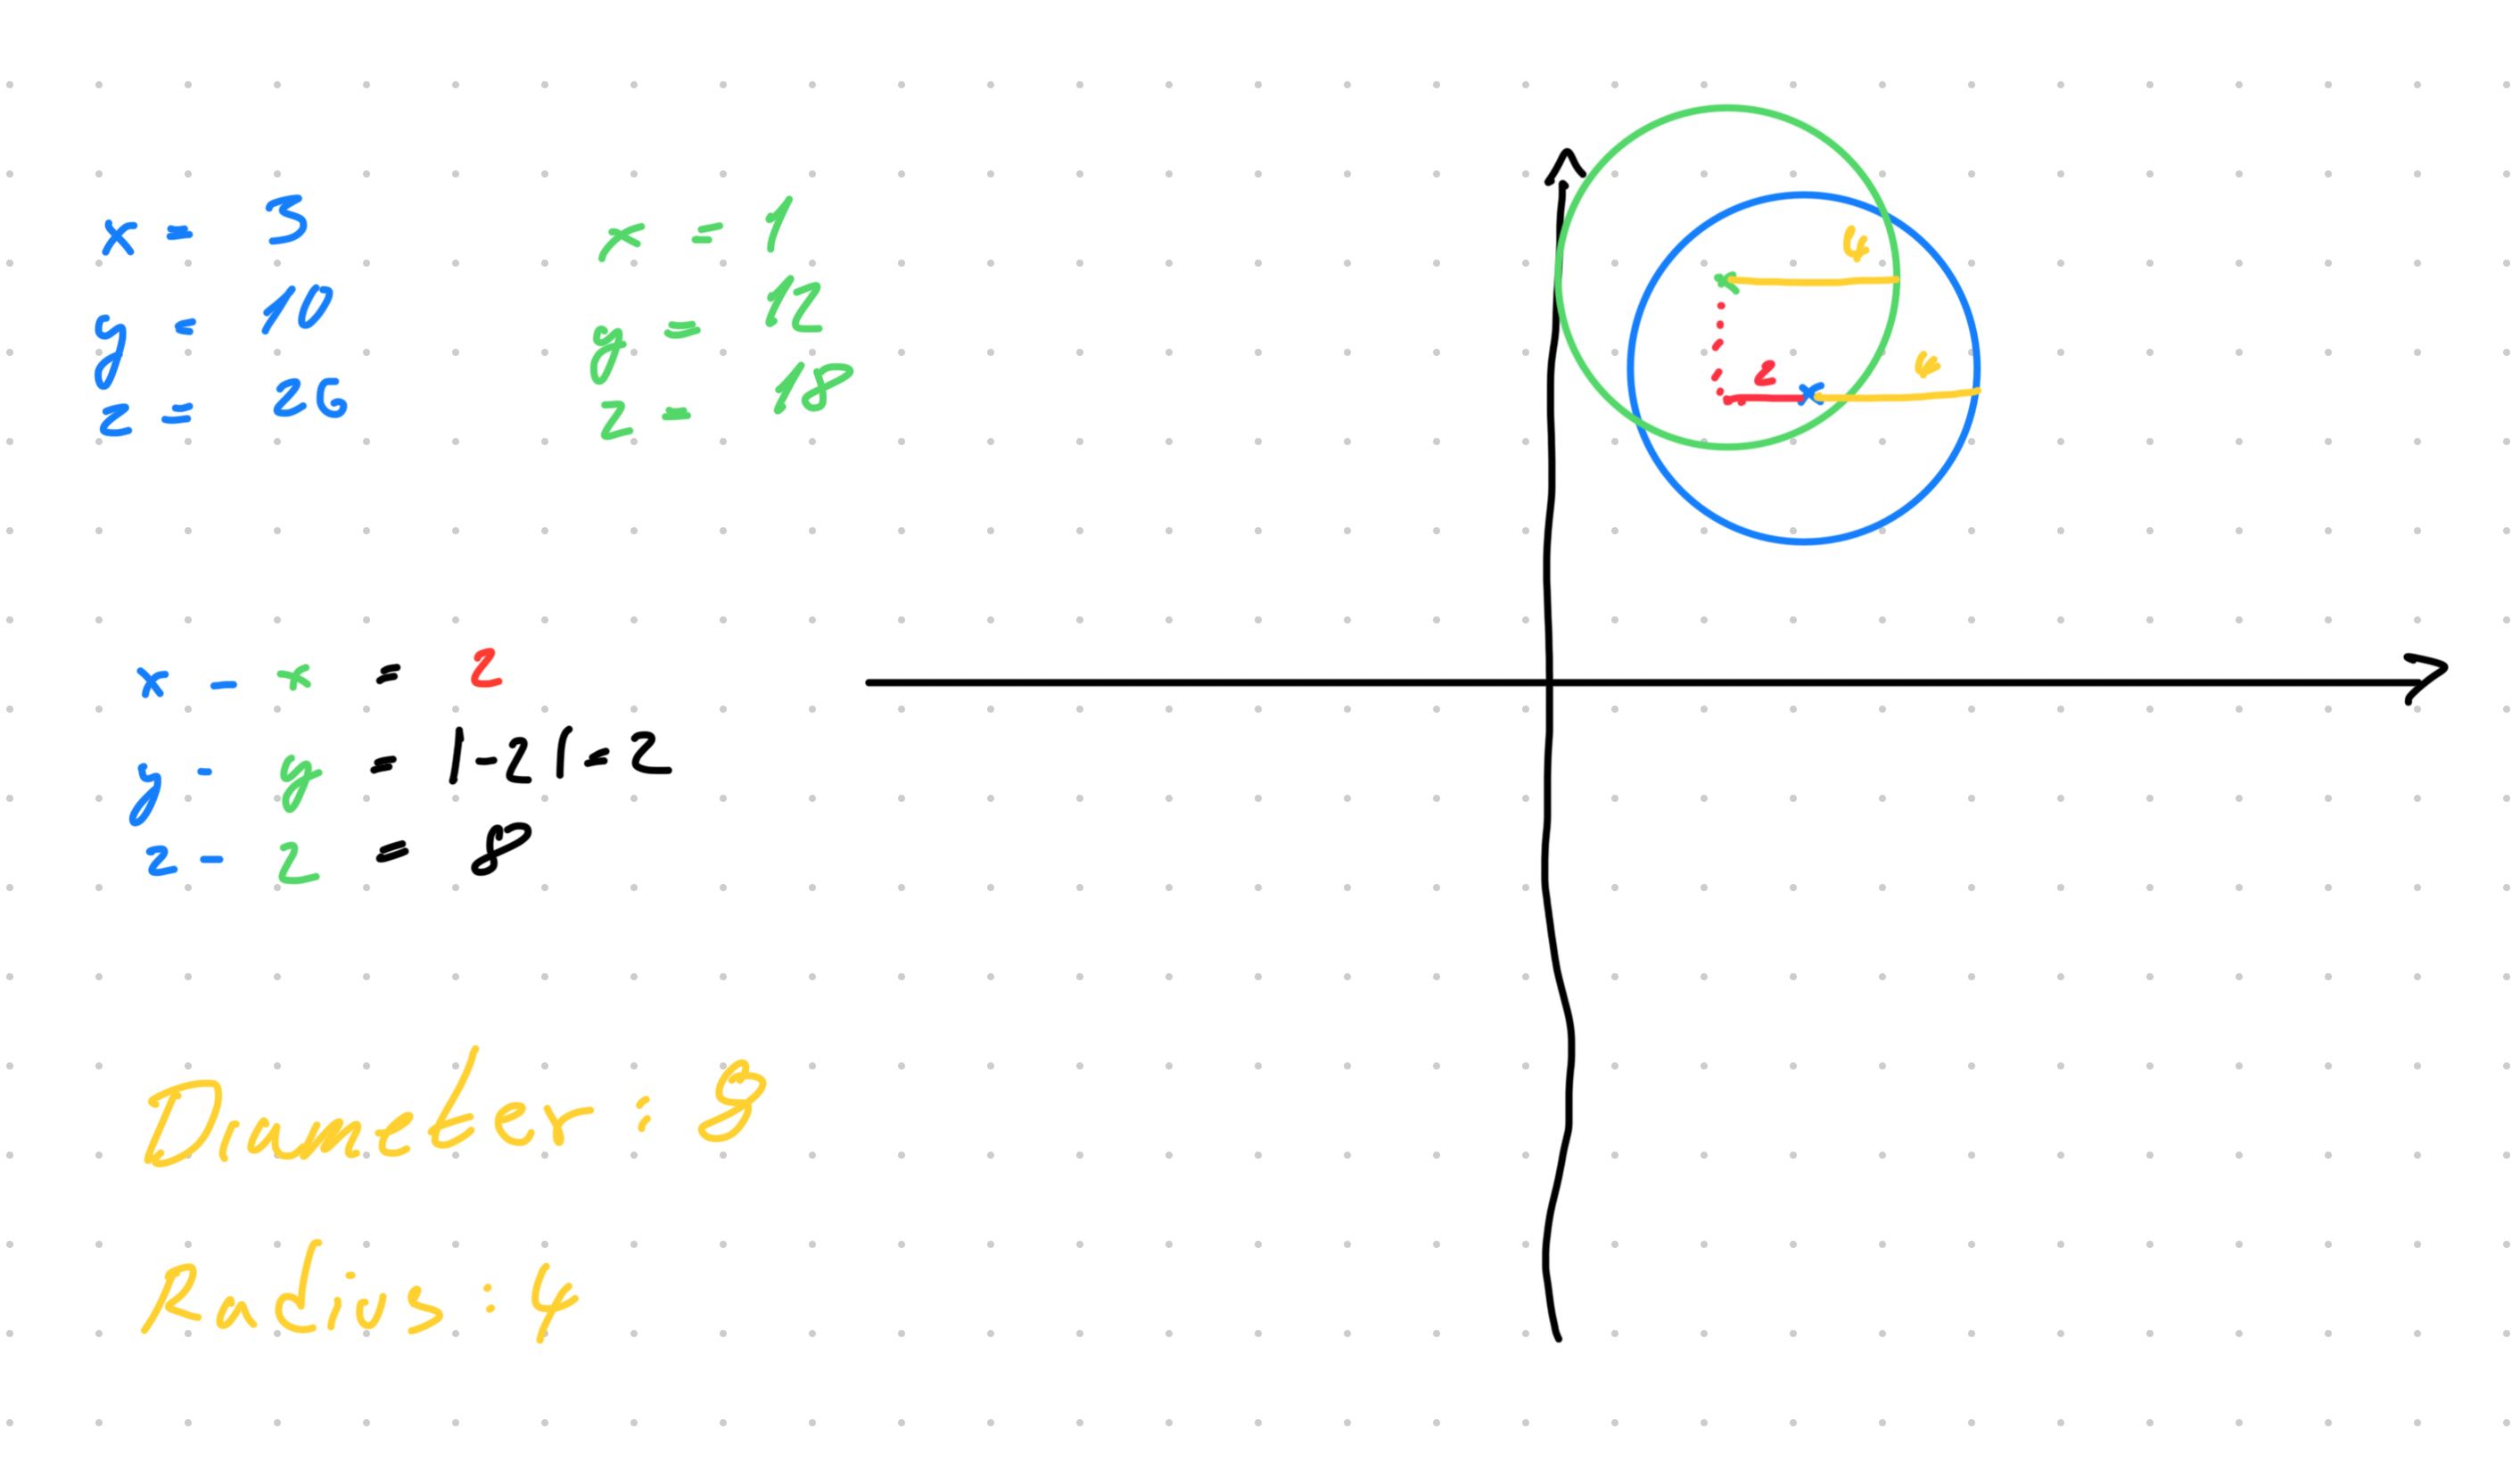 x = 3
y = 10
z = 26
x = 1
y = 12
z = 18
x - x = 2
y - y = |-2| = 2
z - z = 8
Diameter : 8
Radius : 4
4
2
4